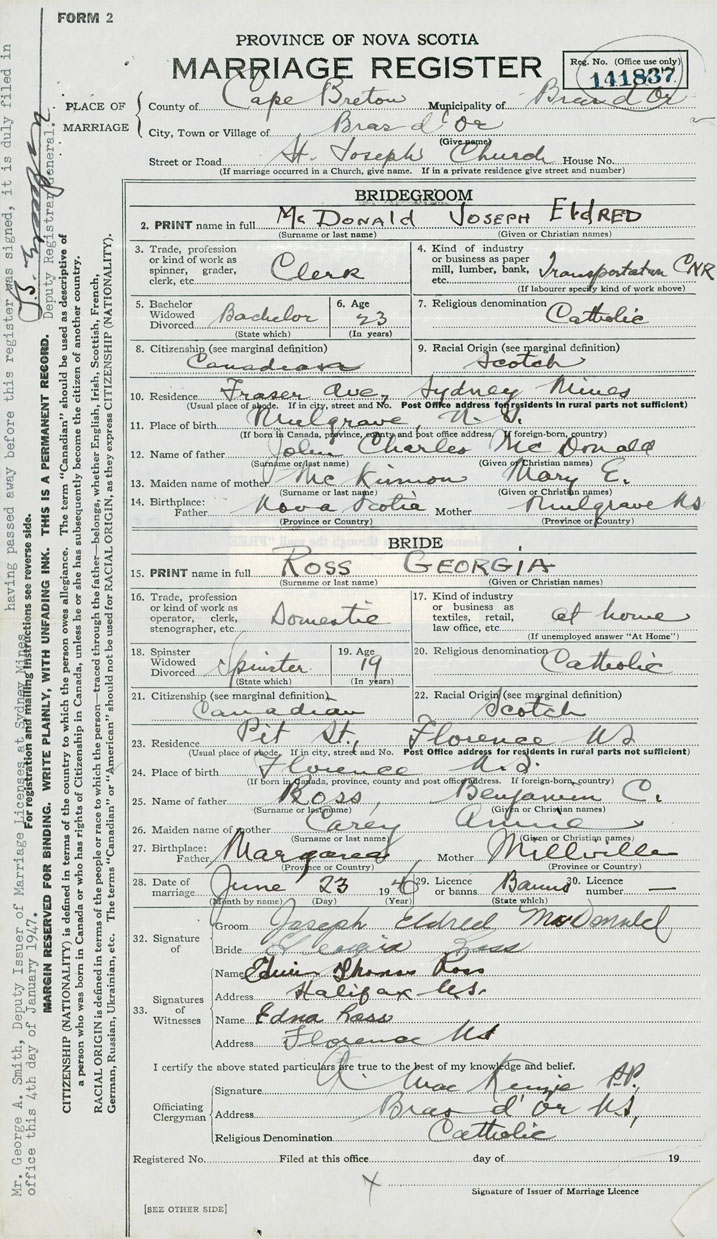 FORM 2
PROVINCE OF NOVA SCOTIA
MARRIAGE REGISTER
Reg. No. (Office use only)
141837
PLACE OF MARRIAGE
County of Cape Breton Municipality of Bras d'Or
City, Town or Village of Bras d'Or
(Give name)
Street or Road St. Joseph Church House No.
(If marriage occurred in a Church, give name. If in a private residence give street and number)
BRIDEGROOM
2. PRINT name in full McDonald Joseph Eldred
(Surname or last name) (Given or Christian names)
3. Trade, profession or kind of work as spinner, grader, clerk, etc. Clerk
4. Kind of industry or business as paper mill, lumber, bank, etc. Transportation CNR
(If labourer specify kind of work above)
5. Bachelor Widowed Divorced Bachelor
(State which)
6. Age 23
(In years)
7. Religious denomination Catholic
8. Citizenship (see marginal definition) Canadian
9. Racial Origin (see marginal definition) Scotch
10. Residence Fraser Ave, Sydney Mines
(Usual place of abode. If in city, street and No. Post Office address for residents in rural parts not sufficient)
11. Place of birth Mulgrave, N.S.
(If born in Canada, province, county and post office address. If foreign-born, country)
12. Name of father John Charles McDonald
(Surname or last name) (Given or Christian names)
13. Maiden name of mother McKinnon Mary E.
(Surname or last name) (Given or Christian names)
14. Birthplace: Father Nova Scotia Mother Mulgrave NS
(Province or Country) (Province or Country)
BRIDE
15. PRINT name in full ROSS GEORGIA
(Surname or last name) (Given or Christian names)
16. Trade, profession or kind of work as operator, clerk, stenographer, etc. Domestic
17. Kind of industry or business as textiles, retail, law office, etc. at home
(If unemployed answer "At Home")
18. Spinster Widowed Divorced Spinster
(State which)
19. Age 19
(In years)
20. Religious denomination Catholic
21. Citizenship (see marginal definition) Canadian
22. Racial Origin (see marginal definition) Scotch
23. Residence Pit St, Florence NS
(Usual place of abode. If in city, street and No. Post Office address for residents in rural parts not sufficient)
24. Place of birth Florence N.S.
(If born in Canada, province, county and post office address. If foreign-born, country)
25. Name of father Ross, Benjamin C.
(Surname or last name) (Given or Christian names)
26. Maiden name of mother Carey Annie
(Surname or last name) (Given or Christian names)
27. Birthplace: Father Margaree Mother Millville
(Province or Country) (Province or Country)
28. Date of marriage June 23 1946
(Month by name) (Day) (Year)
29. Licence or banns Banns
(State which)
30. Licence number —
32. Signature of
Groom Joseph Eldred MacDonald
Bride Georgia Ross
33. Signatures of Witnesses
Name Edwin Thomas Ross
Address Halifax N.S.
Name Edna Ross
Address Florence NS
I certify the above stated particulars are true to the best of my knowledge and belief.
Officiating Clergyman
Signature MacKenzie P.P.
Address Bras d'Or NS,
Religious Denomination Catholic
Registered No. Filed at this office day of 19
Signature of Issuer of Marriage Licence
[SEE OTHER SIDE]
Mr. George A. Smith, Deputy Issuer of Marriage Licenses at Sydney Mines having passed away before this register was signed, it is duly filed in
office this 4th day of January 1947.
Deputy Registrar General.
For registration and mailing instructions see reverse side.
MARGIN RESERVED FOR BINDING. WRITE PLAINLY, WITH UNFADING INK. THIS IS A PERMANENT RECORD.
CITIZENSHIP (NATIONALITY) is defined in terms of the country to which the person owes allegiance. The term "Canadian" should be used as descriptive of
a person who was born in Canada or who has rights of Citizenship in Canada, unless he or she has subsequently become the citizen of another country.
RACIAL ORIGIN is defined in terms of the people or race to which the person—traced through the father—belongs, whether English, Irish, Scottish, French,
German, Russian, Ukrainian, etc. The terms "Canadian" or "American" should not be used for RACIAL ORIGIN, as they express CITIZENSHIP (NATIONALITY).